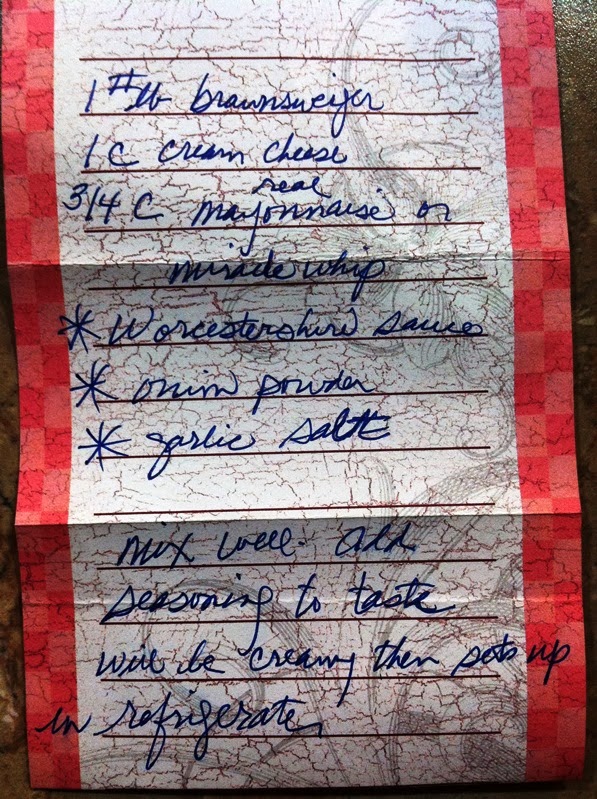 1 # lb braunsweijer
1 C cream cheese
real
3/4 C mayonnaise or
miracle whip
* Worcestershire sauce
* onion powder
* garlic salt
mix well. add
seasoning to taste
will be creamy then sets up
in refrigerate